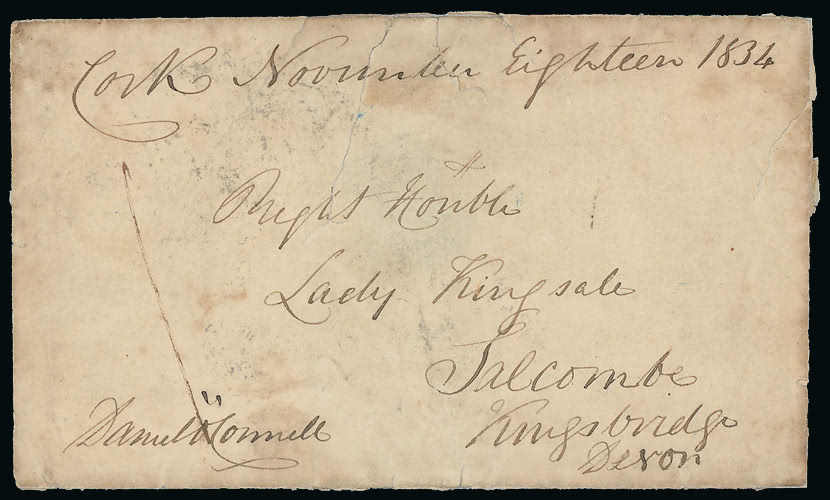 Cork November Eighteen 1834
Right Honble
Lady Kingsale
Salcombe
Kingsbridge
Devon
Daniel O'Connell